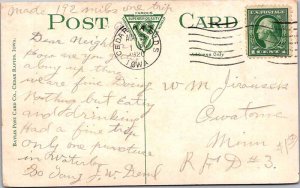 made 192 miles one trip
POST CARD
CEDAR RAPIDS
IOWA
Address Only
1 CENT 1
Baylis Post Card Co., Cedar Rapids, Iowa.
Dear Neighbor
how are you getting
along up there
we are fine Doing
Nothing but eating
and drinking
had a fine trip
only one puncture
in Waterloo
So Long J. W.
W M Jirousek
Owatonna
Minn
R F D # 3.